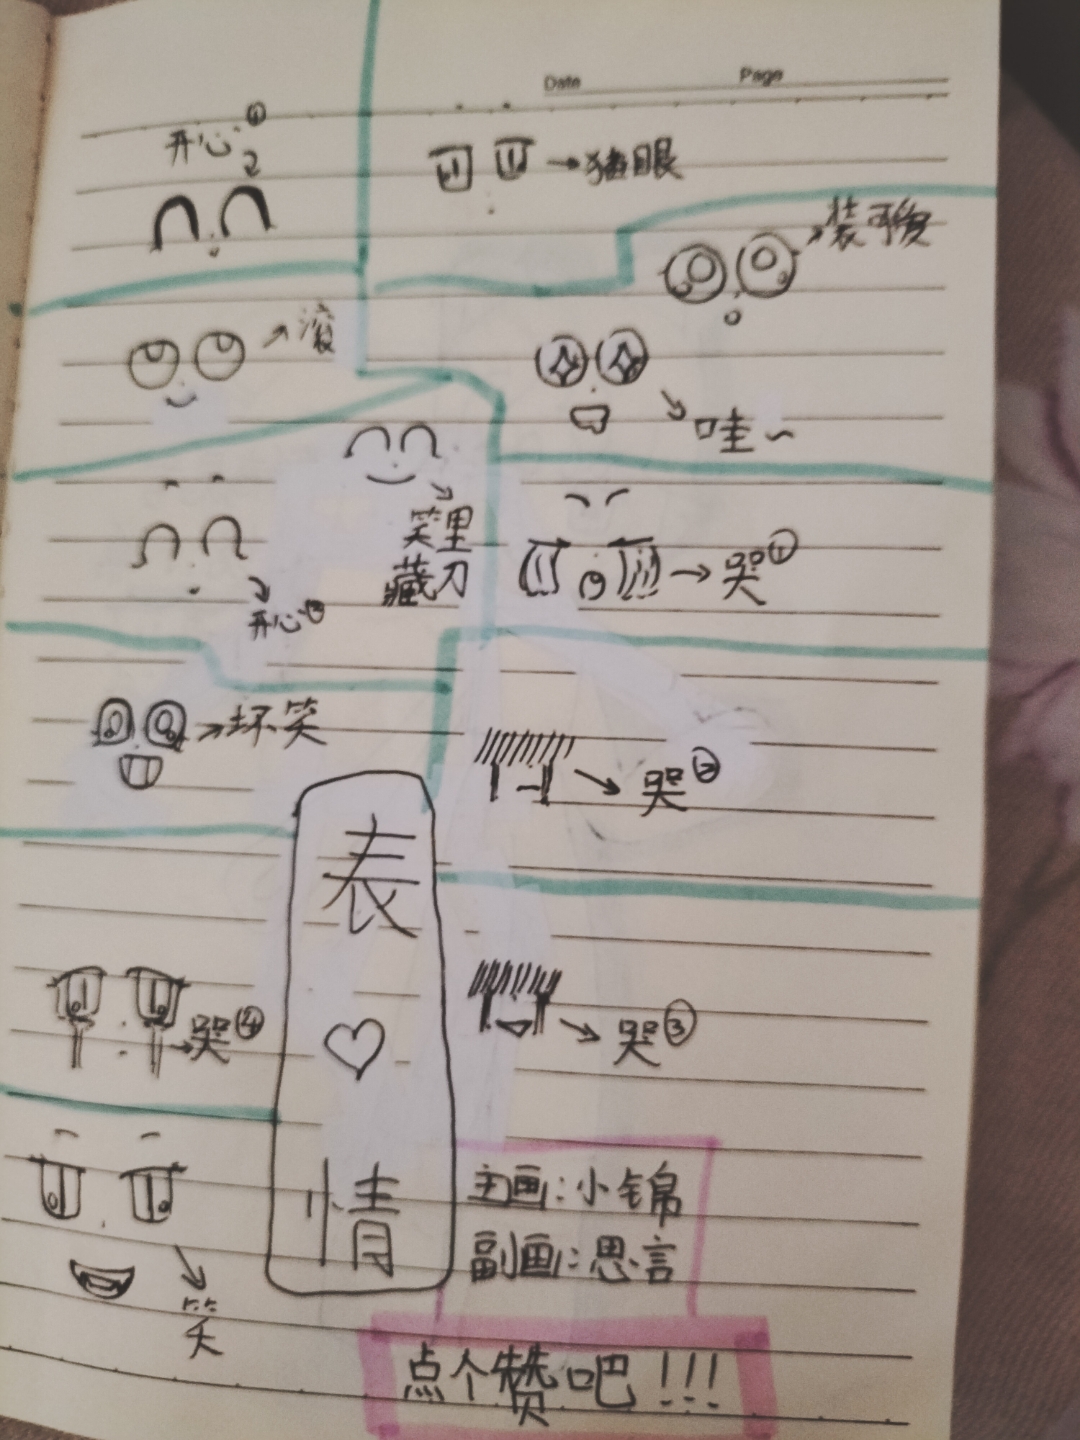 Date Page
开心①
2
→猫眼
装可爱
滚
哇~
笑里
藏刀
开心②
哭①
坏笑
哭②
表
♡
情
哭④
哭③
主画:小锦
副画:思言
笑
点个赞吧!!!